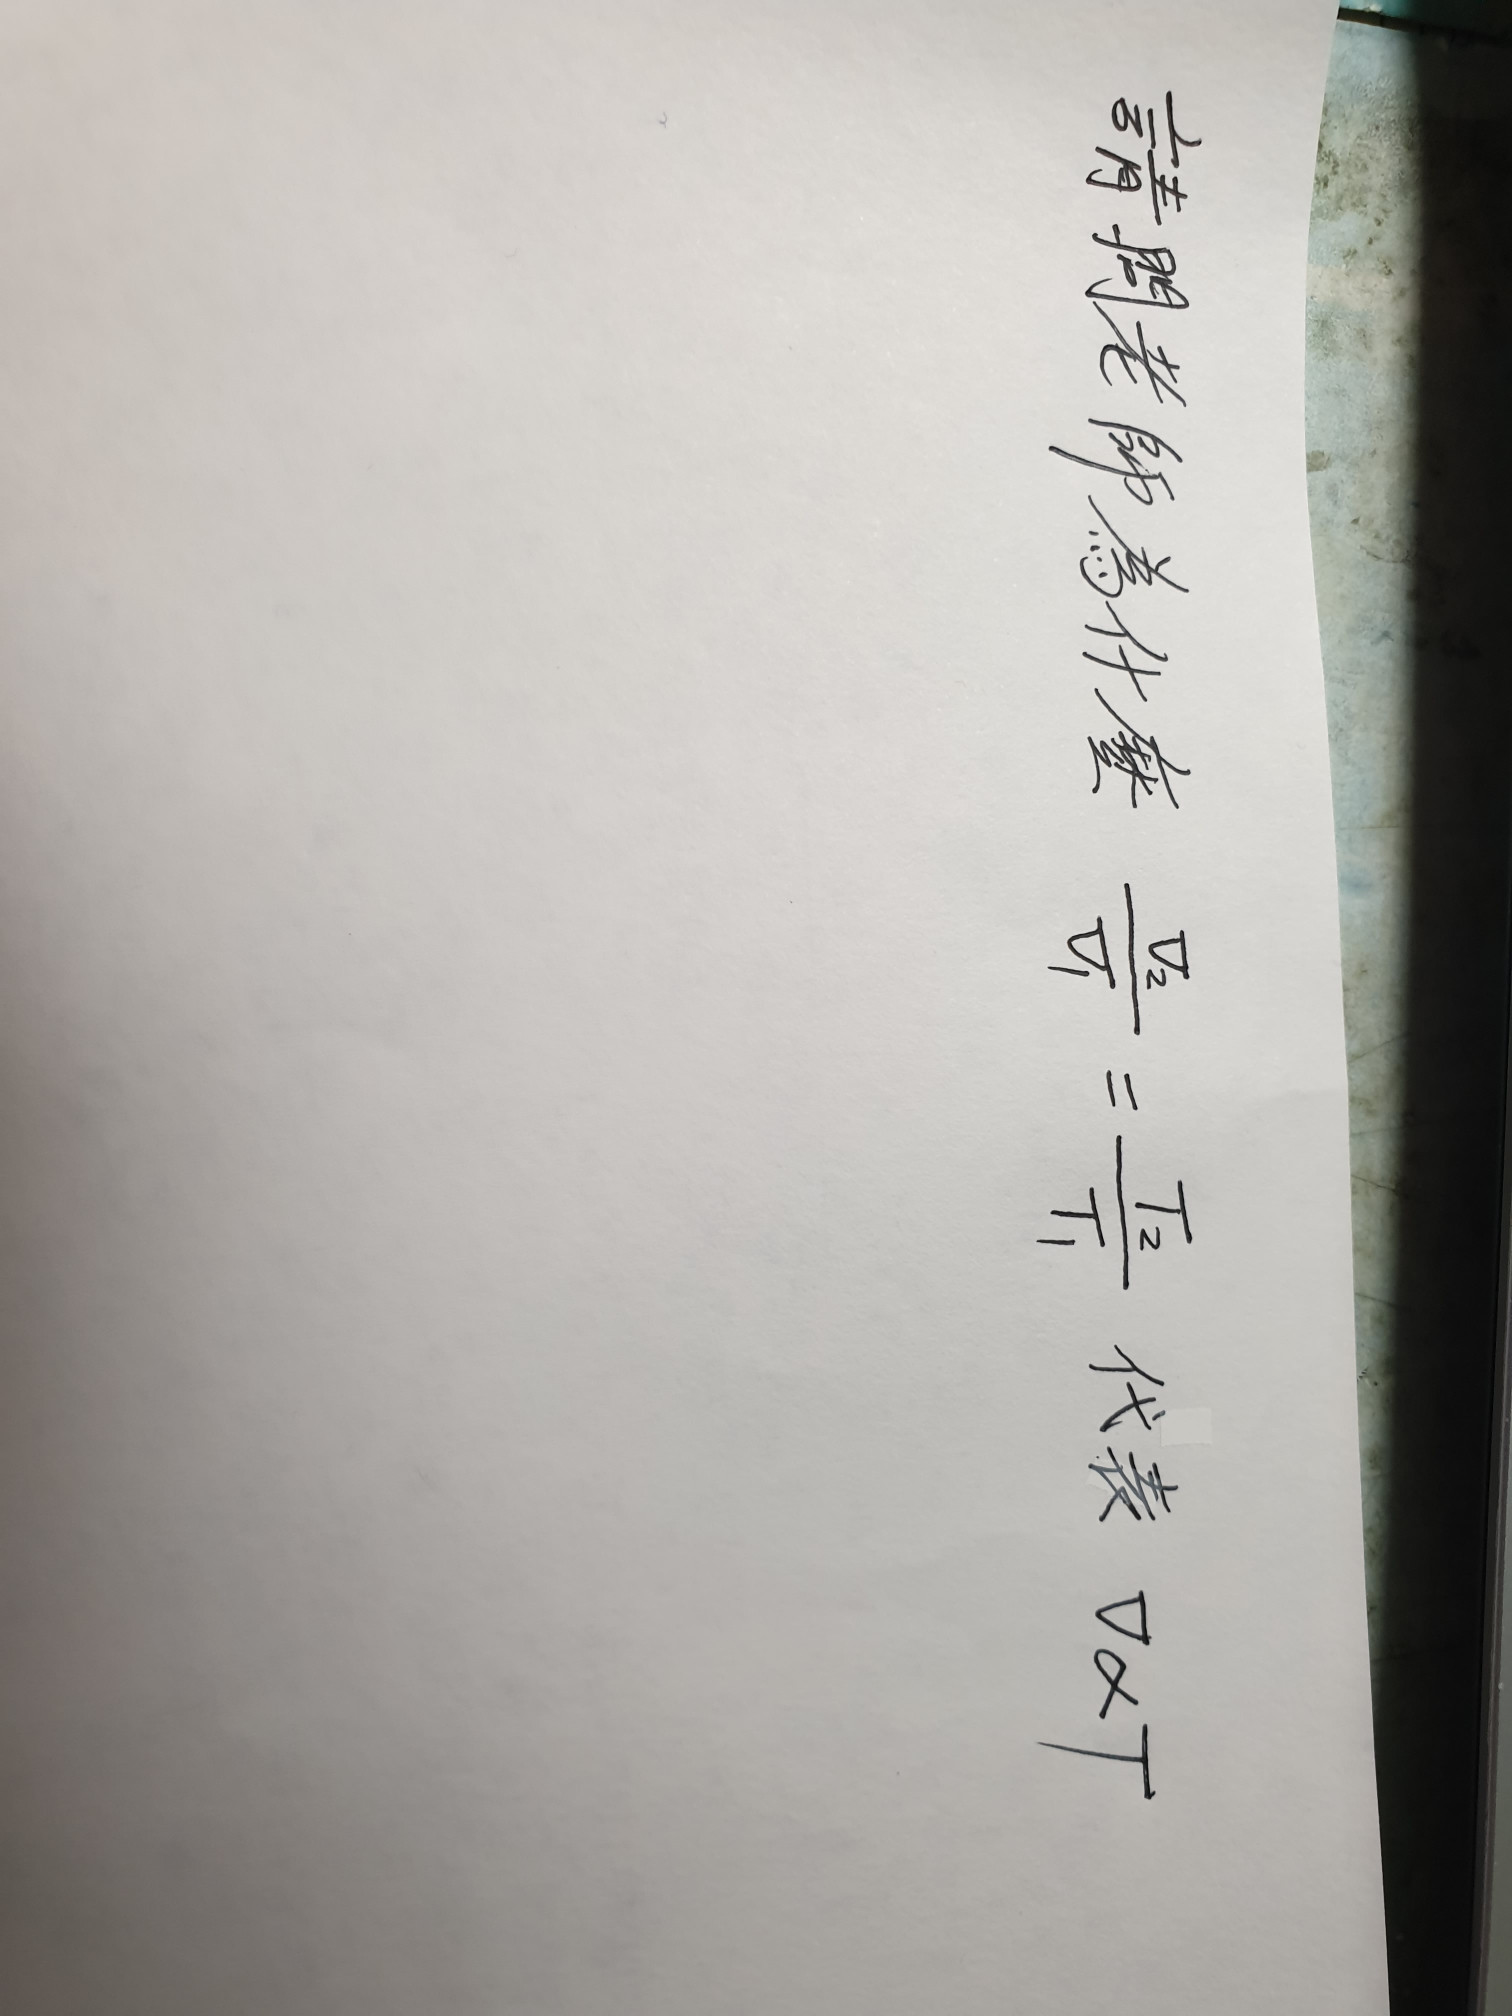 請問老師為什麼 V₂/V₁ = T₂/T₁ 代表 V∝T